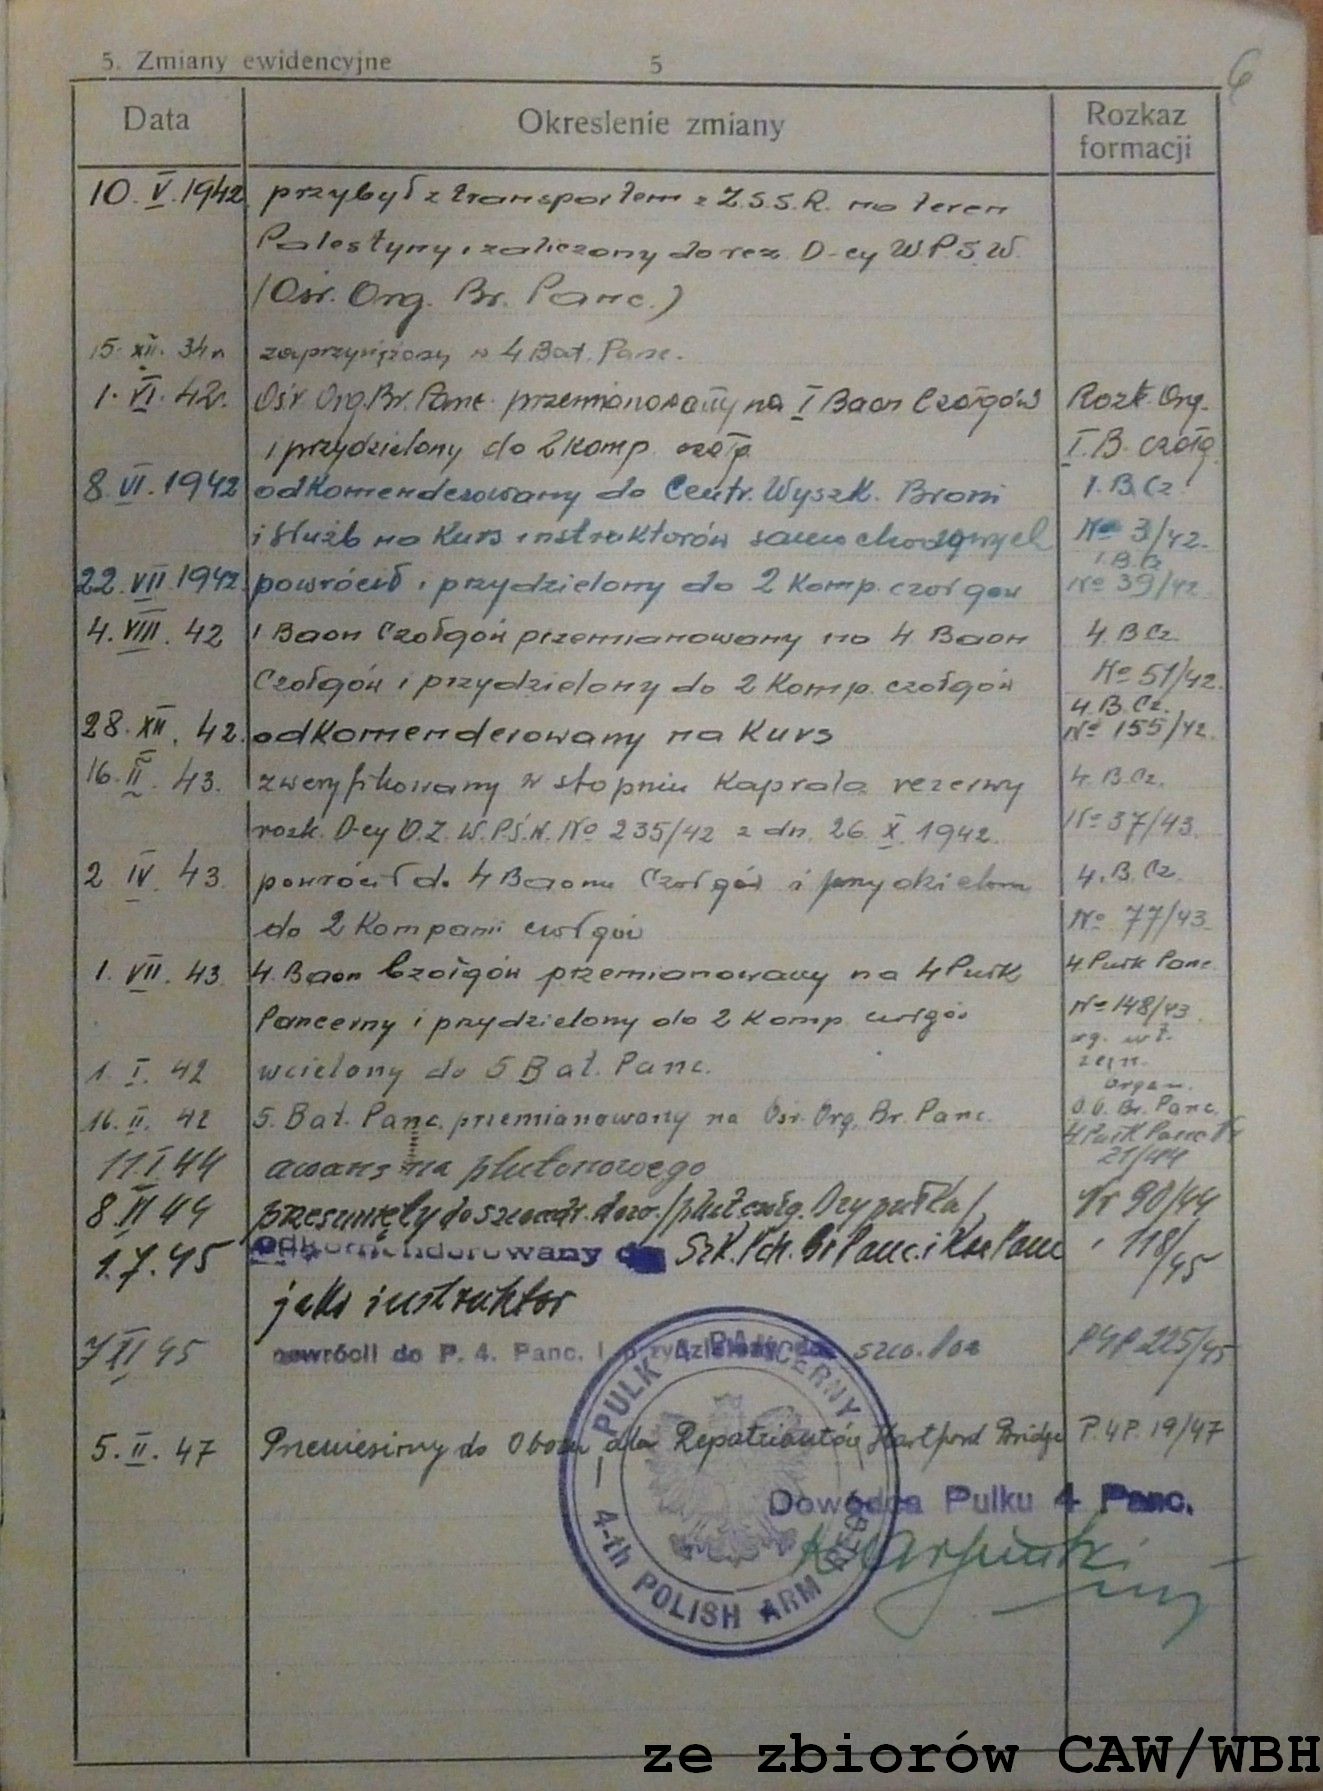 5. Zmiany ewidencyjne 5 6
Data Okreslenie zmiany Rozkaz formacji
10. V. 1942 przybył z transportem z Z.S.S.R. na teren
Palestyny i zaliczony do rez. D-cy W.P.S.W.
(Ośr. Org. Br. Panc.)
15. XII. 34 r. zaprzysiężony w 4 Bat. Panc.
1. VI. 42. Ośr. Org. Br. Panc. przemianowany na I Baon Czołgów Rozk. Org.
i przydzielony do 2 komp. czołg. I. B. czołg.
8. VI. 1942 odkomenderowany do Centr. Wyszk. Broni 1. B. Cz.
i Służb na Kurs instruktorów samochodowych No 3/42.
1. B. Cz.
22. VII. 1942. powrócił i przydzielony do 2 Komp. czołgów No 39/42
4. VIII. 42 1 Baon Czołgów przemianowany na 4 Baon 4. B Cz.
Czołgów i przydzielony do 2 Komp. czołgów No 51/42.
4. B. Cz.
28. XII. 42. odkomenderowany na Kurs No 155/42.
16. II. 43. zweryfikowany w stopniu kaprala rezerwy 4. B. Cz.
rozk. D-cy O.Z. W.P.Ś.W. No 235/42 z dn. 26. X. 1942. No 37/43.
2 IV. 43. powrócił do 4 Baonu Czołgów i przydzielony 4. B. Cz.
do 2 Kompanii czołgów No 77/43.
1. VII. 43 4. Baon Czołgów przemianowany na 4 Pułk 4 Pułk Panc
Pancerny i przydzielony do 2 Komp. czołgów No 148/43
1. I. 42 wcielony do 5 Bat. Panc. zezn.
organ.
16. II. 42 5. Bat. Panc. przemianowany na Ośr. Org. Br. Panc. O.O. Br. Panc.
4 Pułk Panc Nr
11. I 44 awans na plutonowego 21/44
8. II 44 przesunięty do szwadr. dow. /plut. czołg. Dcy pułku/ Nr 90/44
1.7.45 odkomenderowany do Szk. Pch. Br Panc. i Kaw Panc " 118/45
jako instruktor
7 XI 45 powrócił do P. 4. Panc. i przydzielony do szw. P4P 225/45
5. II. 47 Przeniesiony do Obozu dla Repatriantów Hartford Bridge P. 4 P. 19/47
PUŁK 4 PANCERNY
4-th POLISH ARM REGT
Dowódca Pułku 4 Panc.
ze zbiorów CAW/WBH